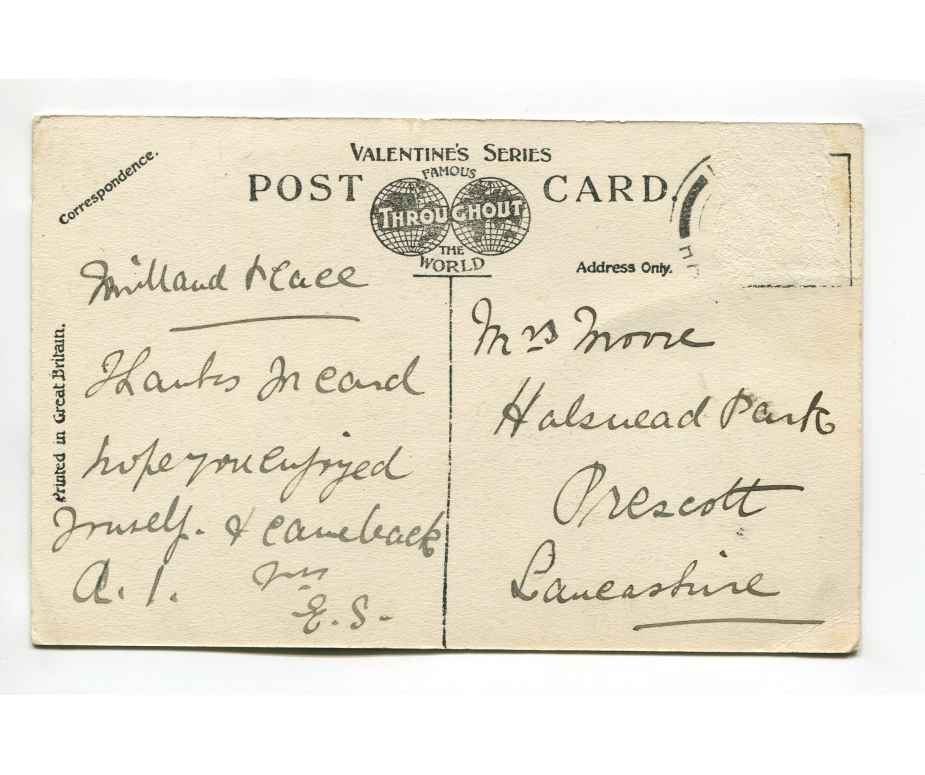 VALENTINE'S SERIES
POST CARD.
FAMOUS
THROUGHOUT
THE
WORLD
Correspondence.
Address Only.
Printed in Great Britain.
Milland Place
Thanks for card
hope you enjoyed
yourself. & came back
A.1. yrs
E.S.
Mrs Moore
Halsnead Park
Prescott
Lancashire